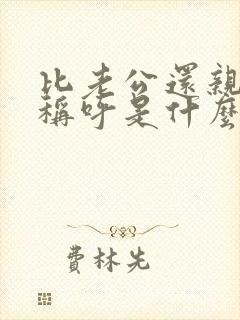 比老公還親
稱呼是什麼
費林先